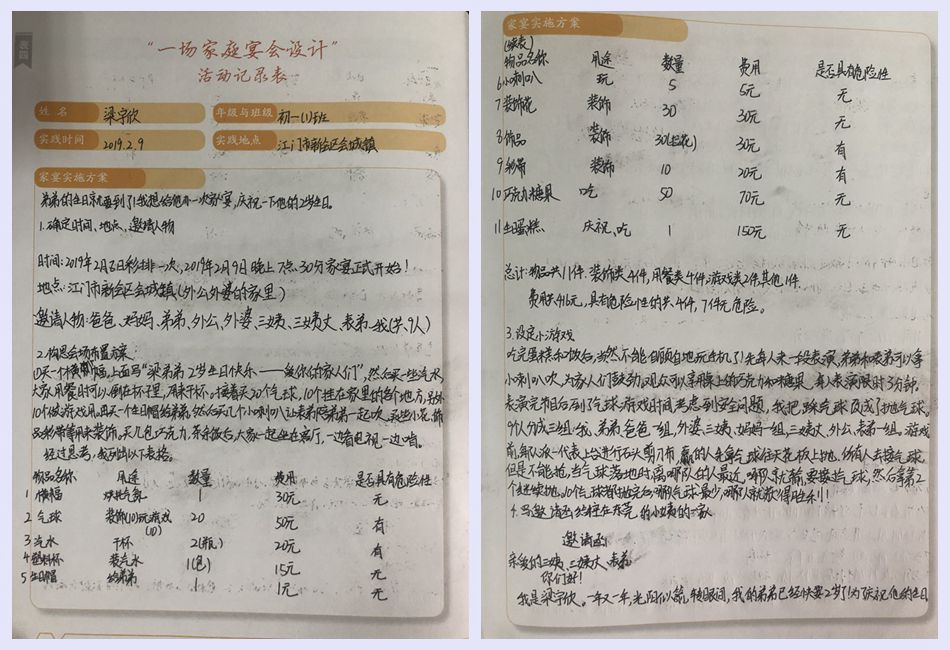 表四
“一场家庭宴会设计”
活动记录表
姓名 梁宇欣 年级与班级 初一(1)班
实践时间 2019.2.9 实践地点 江门市新会区会城镇
家宴实施方案
弟弟的生日就要到了!我想给他办一次家宴,庆祝一下他的2岁生日。
1.确定时间、地点、邀请人物
时间:2019年2月8日彩排一次,2019年2月9日晚上7点30分家宴正式开始!
地点:江门市新会区会城镇(外公外婆的家里)
邀请人物:爸爸、妈妈、弟弟、外公、外婆、三姨、三姨丈、表弟、我(共9人)
2.构思会场布置方案:
(1)买一个横幅,上面写“梁弟弟2岁生日快乐——爱你的家人们”,然后买一些汽水,
大家用餐时可以倒在杯子里,用来干杯。接着买20个气球,10个挂在家里的各个地方,另外
10个做游戏用。再买一个生日帽给弟弟,然后买几个小喇叭让表弟陪弟弟一起吹。买些小花、饰
品、彩带等用来装饰。买几包巧克力,茶余饭后,大家一起坐在客厅,一边看电视一边吃。
经过思考,我列出以下表格。
物品名称 用途 数量 费用 是否具有危险性
1 横幅 烘托气氛 1 30元 无
2 气球 装饰(10)玩游戏(10) 20 50元 有
3 汽水 干杯 2(瓶) 20元 有
4 塑料杯 装汽水 1(包) 15元 无
5 生日帽 给弟弟 1 1元 无
家宴实施方案
(续表)
物品名称 用途 数量 费用 是否具有危险性
6 小喇叭 玩 5 5元 无
7 装饰花 装饰 30 30元 无
8 饰品 装饰 30 30元 有
9 彩带 装饰 10 20元 有
10 巧克力糖果 吃 50 70元 无
11 生日蛋糕 庆祝、吃 1 150元 无
总计:物品共11件。装饰类4件,用餐类4件,游戏类2件,其他1件。
费用共416元,具有危险性的共4件,7件无危险。
3.设定小游戏
吃完蛋糕和饭后,当然不能自顾自地玩手机了!先每人来一段表演,弟弟和表弟可以拿
小喇叭吹,为家人们鼓劲,观众可以享用桌上的巧克力和糖果,每人表演限时3分钟。
表演完节目后到了气球游戏时间,考虑到安全问题,我把踩气球改成了拍气球。
9人分成三组:我、弟弟、爸爸一组,外婆、三姨、妈妈一组,三姨丈、外公、表弟一组。游戏
前每队派一代表上台进行石头剪刀布,赢的人先拿气球往天花板上拍,所有人去接气球,
但是不能抢,当气球落地时离哪队的人最近,哪队就输,要捡气球,然后拿第2
个继续拍,10个气球都拍完后,哪队气球最少,哪队就获得胜利!
4.写邀请函给住在东莞的小姨的一家
邀请函
亲爱的三姨、三姨丈、表弟:
你们好!
我是梁宇欣。一年又一年,光阴似箭,转眼间,我的弟弟已经快要2岁了!为庆祝他的生日